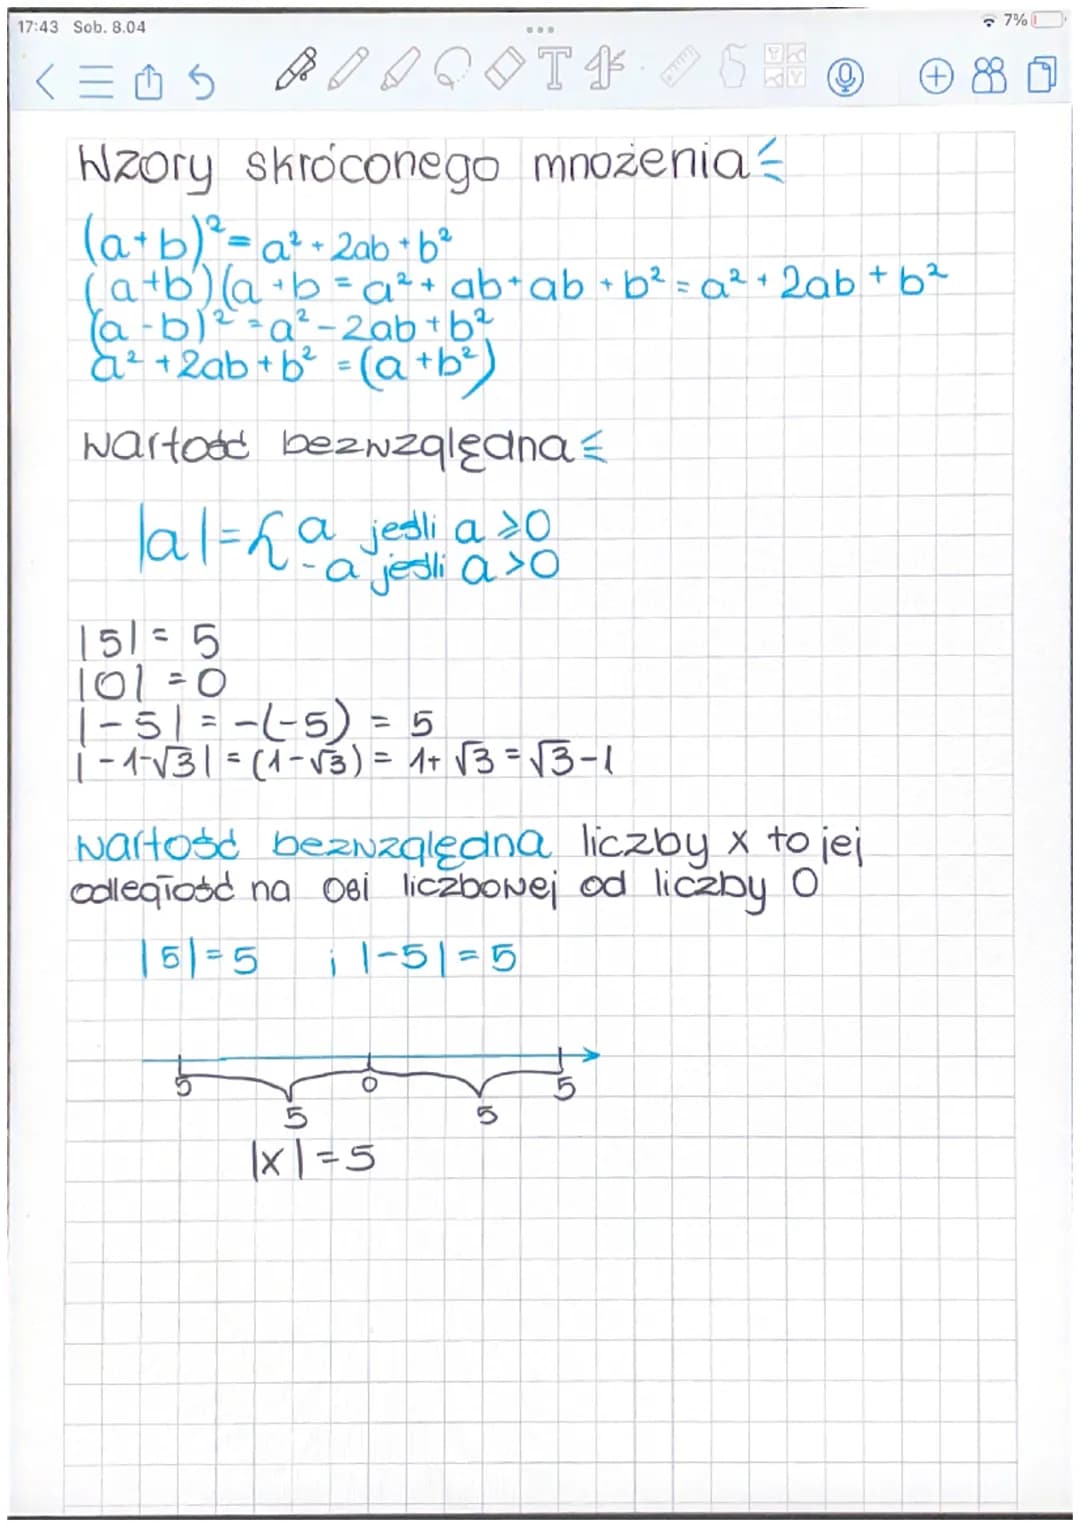 17:43 Sob. 8.04
7%
Wzory skróconego mnożenia
(a+b)²= a² + 2ab + b²
(a+b)(a+b = a² + ab + ab + b² = a² + 2ab + b²
(a-b)² = a² - 2ab + b²
a² + 2ab + b² = (a + b²)
wartość bezwzględna
|a| = { a jeśli a ⩾ 0
-a jeśli a > 0
|5| = 5
|0| = 0
|-5| = -(-5) = 5
|-1-√3| = (1-√3) = 1+ √3 = √3-1
wartość bezwzględna liczby x to jej
odległość na osi liczbowej od liczby 0
|5| = 5 i |-5| = 5
5 0 5
5 5
|x| = 5